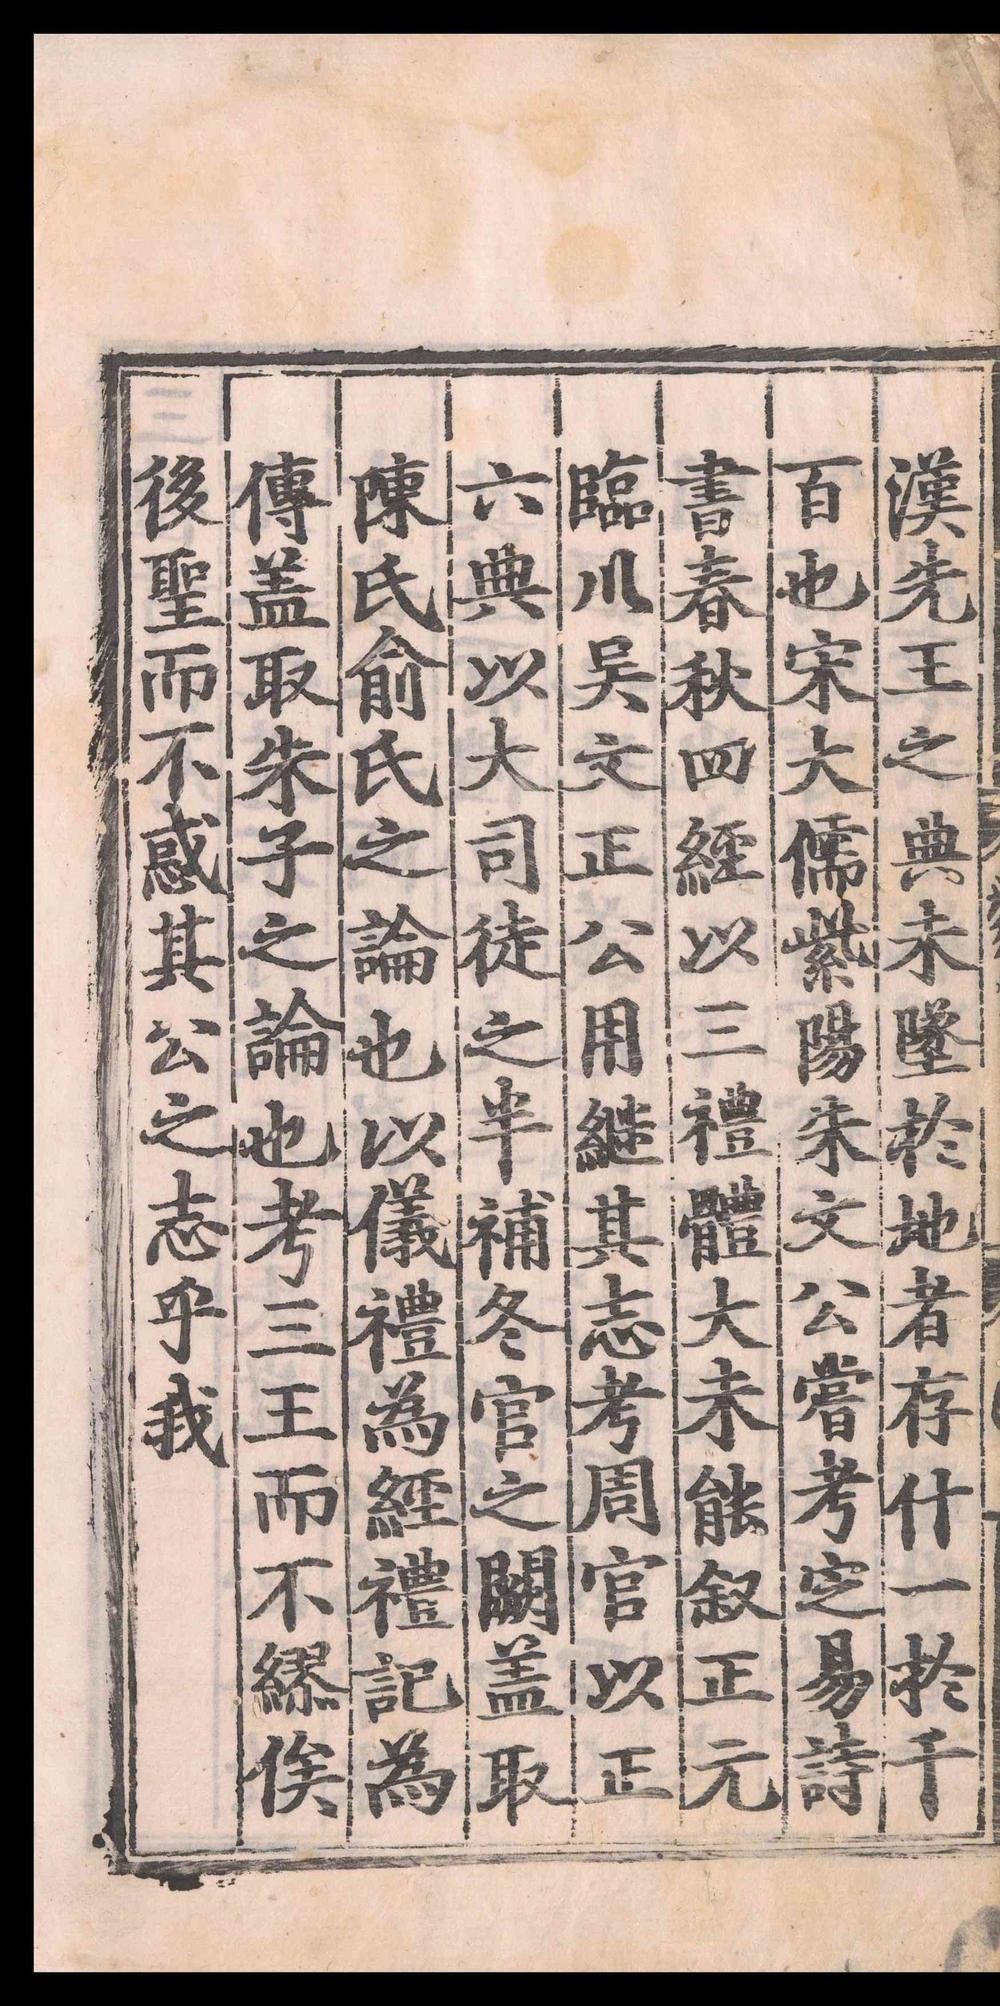 漢先王之典未墜於地者存什一於千
百也宋大儒紫陽朱文公嘗考定易詩
書春秋四經以三禮體大未能叙正元
臨川吴文正公用継其志考周官以正
六典以大司徒之半補冬官之闕盖取
陳氏俞氏之論也以儀禮為經禮記為
傳盖取朱子之論也考三王而不繆俟
後聖而不惑其公之志乎我